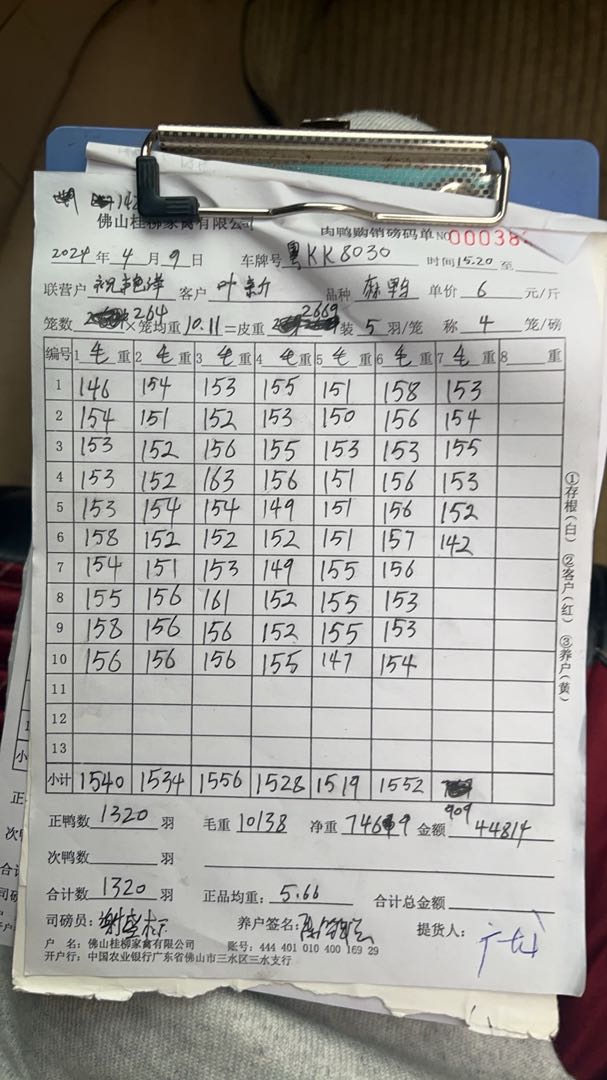 佛山桂柳家禽有限公司 肉鸭购销磅码单 NO 00038
2024年4月9日 车牌号 粤KK8030 时间 15.20 至
联营户 客户 叶新 品种 麻鸭 单价 6 元/斤
笼数 264 ×笼均重 10.11 =皮重 2669 装 5 羽/笼 称 4 笼/磅
编号 1 毛 重 2 毛 重 3 毛 重 4 毛 重 5 毛 重 6 毛 重 7 毛 重 8 重
1 146 154 153 155 151 158 153
2 154 151 152 153 150 156 154
3 153 152 156 155 153 153 155
4 153 152 163 156 151 156 153
5 153 154 154 149 151 156 152
6 158 152 152 152 151 157 142
7 154 151 153 149 155 156
8 155 156 161 152 155 153
9 158 156 156 152 155 153
10 156 156 156 155 147 154
11
12
13
小计 1540 1534 1556 1528 1519 1552 909
正鸭数 1320 羽 毛重 10138 净重 7469 金额 44814
次鸭数 羽
合计数 1320 羽 正品均重: 5.66 合计总金额:
司磅员: 养户签名: 提货人:
户 名: 佛山桂柳家禽有限公司 账号: 444 401 010 400 169 29
开户行: 中国农业银行广东省佛山市三水区三水支行
①存根(白) ②客户(红) ③养户(黄)